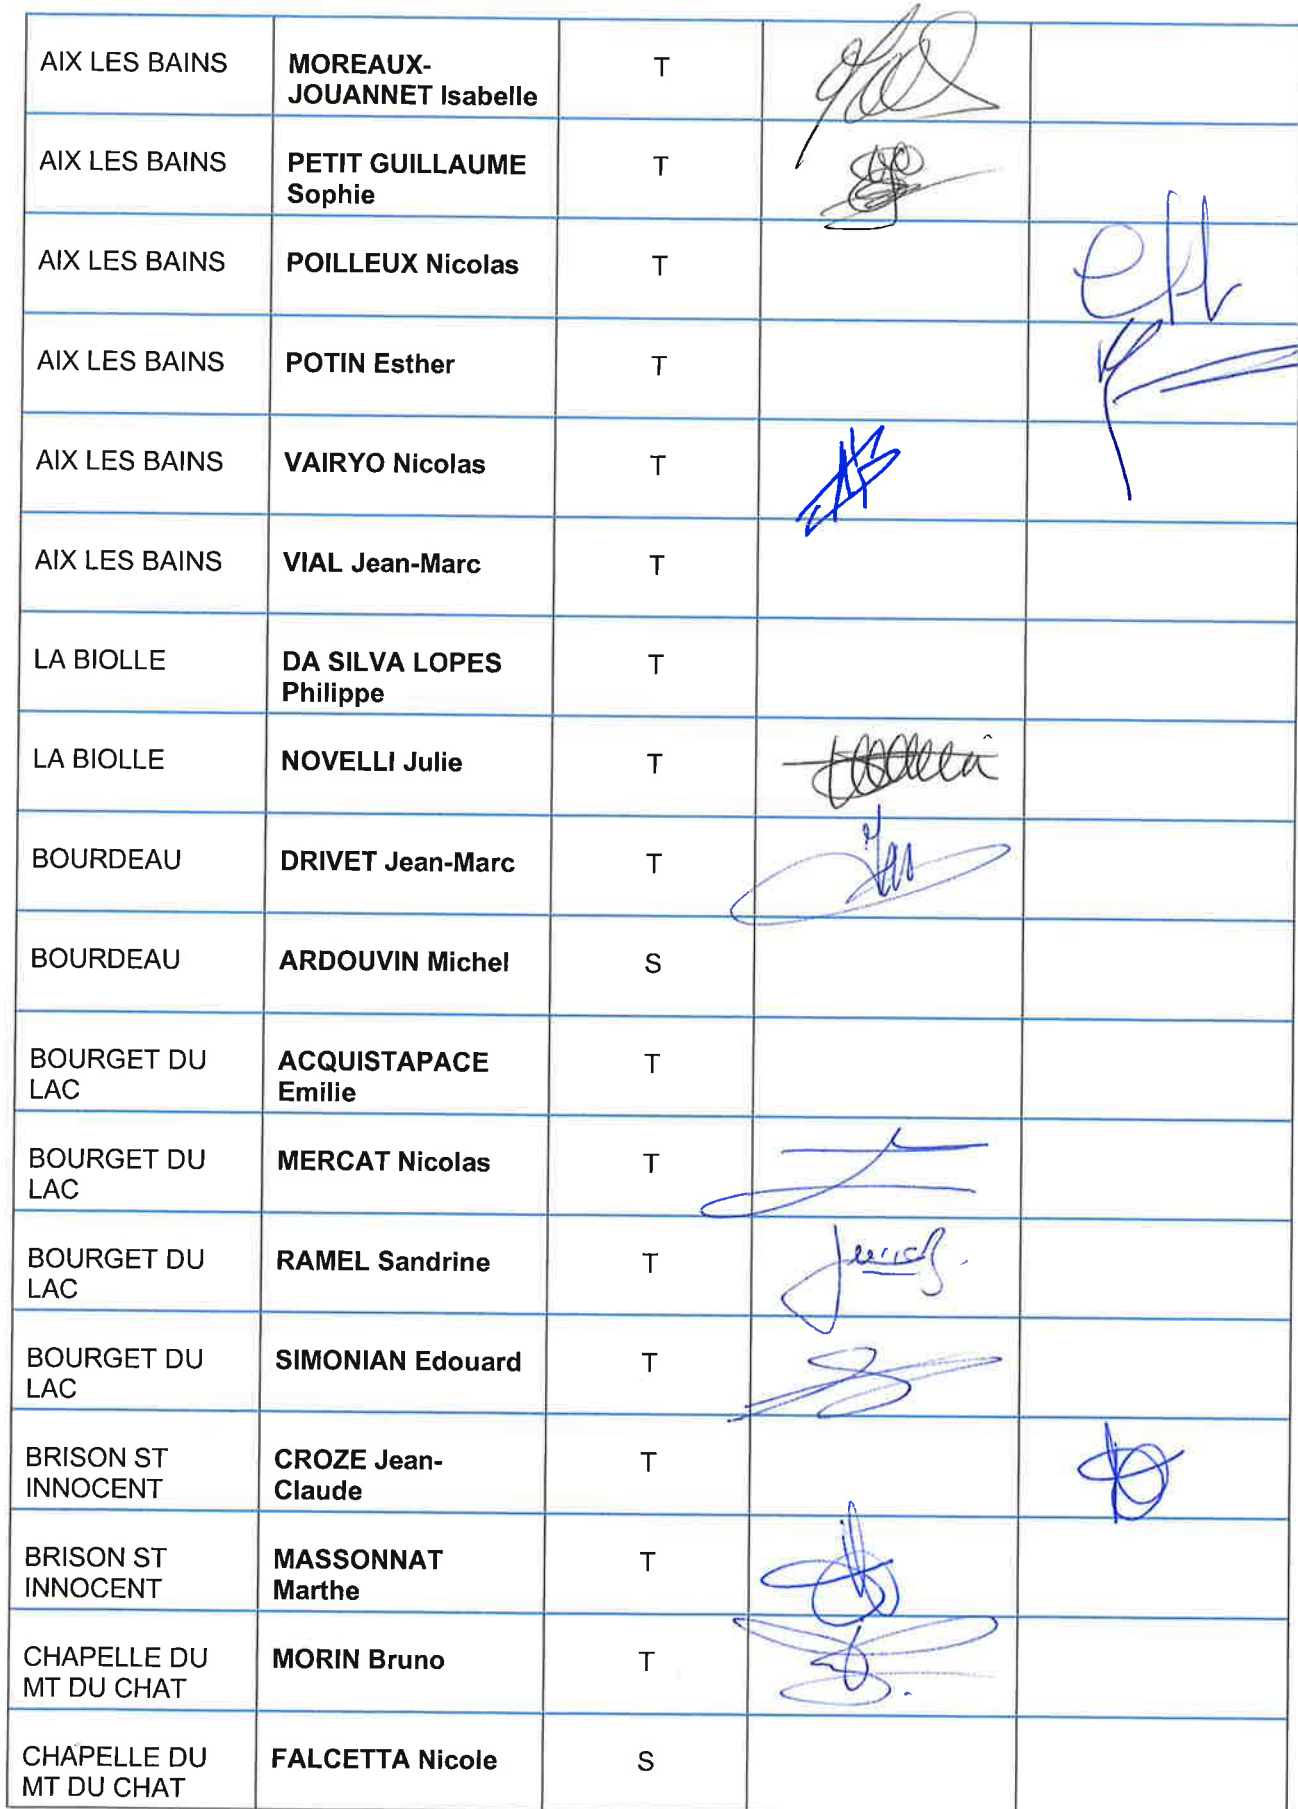 AIX LES BAINS MOREAUX- T
JOUANNET Isabelle
AIX LES BAINS PETIT GUILLAUME T
Sophie
AIX LES BAINS POILLEUX Nicolas T
AIX LES BAINS POTIN Esther T
AIX LES BAINS VAIRYO Nicolas T
AIX LES BAINS VIAL Jean-Marc T
LA BIOLLE DA SILVA LOPES T
Philippe
LA BIOLLE NOVELLI Julie T
BOURDEAU DRIVET Jean-Marc T
BOURDEAU ARDOUVIN Michel S
BOURGET DU ACQUISTAPACE T
LAC Emilie
BOURGET DU MERCAT Nicolas T
LAC
BOURGET DU RAMEL Sandrine T
LAC
BOURGET DU SIMONIAN Edouard T
LAC
BRISON ST CROZE Jean- T
INNOCENT Claude
BRISON ST MASSONNAT T
INNOCENT Marthe
CHAPELLE DU MORIN Bruno T
MT DU CHAT
CHAPELLE DU FALCETTA Nicole S
MT DU CHAT